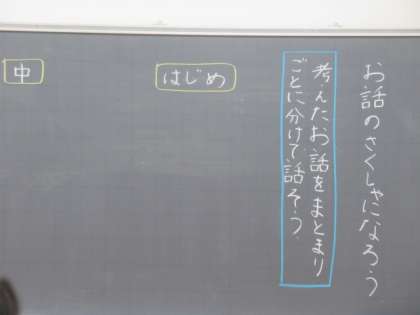 お話のさくしゃになろう
考えたお話をまとまり
ごとに分けて話そう。
はじめ
中